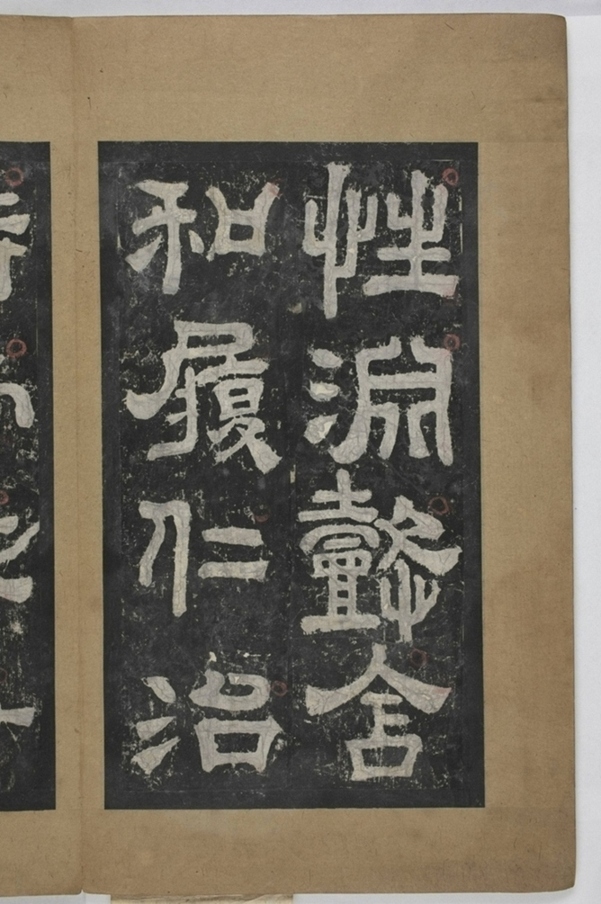 性淵懿含
和履仁治